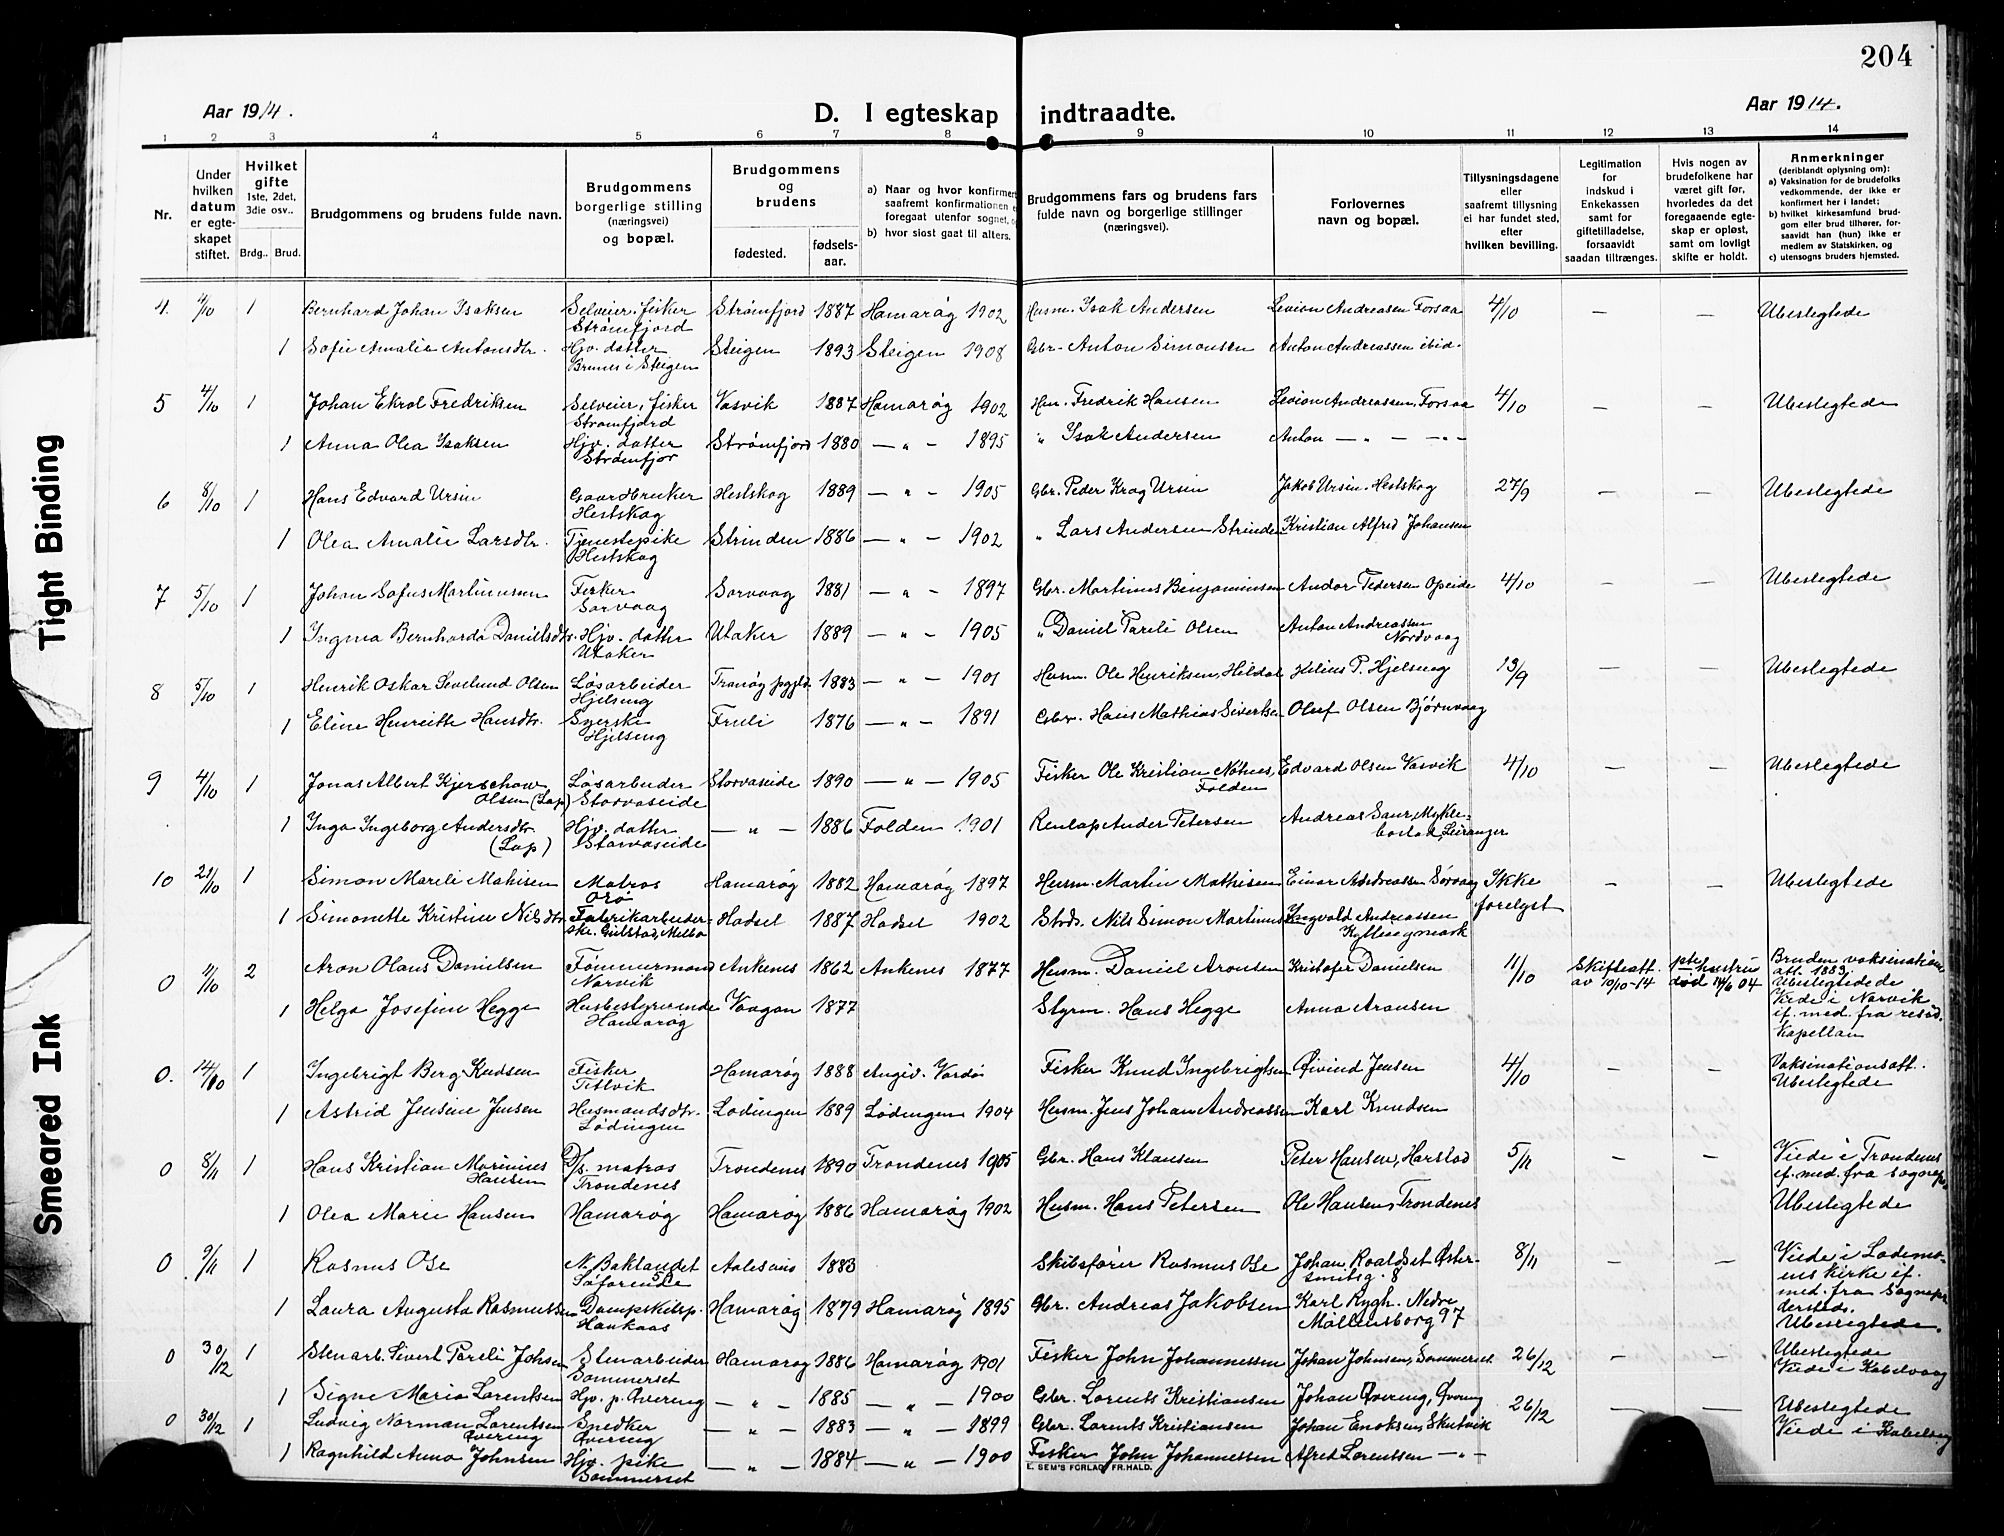 204
Aar 1914.
D. I egteskap indtraadte.
Aar 1914.
1 2 3 4 5 6 7 8 9 10 11 12 13 14
Nr.
Under hvilken datum er egteskapet stiftet.
Hvilket gifte 1ste, 2det, 3die osv..
Brdg.. Brud.
Brudgommens og brudens fulde navn.
Brudgommens borgerlige stilling (næringsvei) og bopæl.
Brudgommens og brudens
fødested. fødselsaar.
a) Naar og hvor konfirmert saafremt konfirmationen foregaat utenfor sognet,
b) hvor sidst gaat til alters.
Brudgommens fars og brudens fars fulde navn og borgerlige stillinger (næringsvei).
Forlovernes navn og bopæl.
Tillysningsdagene eller saafremt tillysning ei har fundet sted, efter hvilken bevilling.
Legitimation for indskud i Enkekassen samt for giftetilladelse, forsaavidt saadan tiltrænges.
Hvis nogen av brudefolkene har været gift før, hvorledes da det foregaaende egteskap er opløst, samt om lovligt skifte er holdt.
Anmerkninger (deriblandt oplysning om):
a) Vaksination for de brudefolks vedkommende, der ikke er konfirmert her i landet;
b) hvilket kirkesamfund brudgom eller brud tilhører, forsaavidt han (hun) ikke er medlem av Statskirken, og
c) utensogns bruders hjemsted.
4. 4/10 1 Bernhard Johan Isaksen Selveier, fisker Strømfjord Strømfjord 1887 Hamarøg 1902 Husm. Isak Andersen Levion Andreasen Forsaa 4/10 — — Ubeslegtede
1 Sofie Amalie Antonsdtr. Hjv. datter Brunes i Steigen Steigen 1893 Steigen 1908 Gbr. Anton Simonsen Anton Andreassen ibid.
5 4/10 1 Johan Ekrol Fredriksen Selveier, fisker Strømfjord Vasvik 1887 Hamarøg 1902 Fredrik Hansen Levion Andreassen, Forsaa 4/10 — — Ubeslegtede
1 Anna Olea Isaksen Hjv. datter Strømfjor Strømfjord 1880 — " — 1895 " Isak Andersen Anton — " — — " —
6 8/10 1 Hans Edvard Ursin Gaardbruker Hestskog Hestskog 1889 — " — 1905 Gbr. Peder Krog Ursin Jakob Ursin. Hestskog 27/9 — — Ubeslegtede
1 Olea Amalie Larsdtr. Tjenestepike Hestskog Strinden 1886 — " — 1902 " Lars Andersen Strinden Kristian Alfred Johansen
7 5/10 1 Johan Sofus Martinusen Fisker Sørvaag Sørvaag 1881 — " — 1897 Gbr. Martinus Binjaminsen Andor Pedersen Opeide 4/10 — — Ubeslegtede
1 Ingma Bernharda Danielsdtr. Hjv. datter Utaker Utaker 1889 — " — 1905 " Daniel Pareli Olsen Anton Andreassen Nordvaag
8 5/10 1 Henrik Oskar Sevelund Olsen Løsarbeider Hjelseng Tranøg pgjld. 1883 — " — 1901 Husm. Ole Henriksen, Hildal Hilius P. Hjelseng 13/9 — — Ubeslegtede
1 Eline Henriette Hansdtr. Syerske Hjelseng 1876 — " — 1891 Gbr. Hans Mathias Sivertsen Oluf Olsen Bjørnvaag
9 4/10 1 Jonas Albert Kjerschow Olsen (Lap) Løsarbeider Storvaseide Storvaseide 1890 — " — 1905 Fisker Ole Kristian Nøtnes, Folden Edvard Olsen Vasvik 4/10 — — Ubeslegtede
1 Inga Ingeborg Andersdtr. (Lap) Hjv. datter Storvaseide — " — 1886 Folden 1901 Renlap Ander Petersen Andreas Saur, Myklebostad, Leiranger
10 1 Simon Mareli Mathisen Matros Hamarøg 1882 Hamarøg 1897 Husm. Martin Mathisen Einar Andreassen Sørvaag Ikke forelyst — — Ubeslegtede
1 Simonette Kristine Nilsdtr. Fabrikarbeiderske. Gulstad, Melbo Hadsel 1887 Hadsel 1902 Nils Simon Martinus Ingvald Andreassen
0 11/10 2 Aron Olaus Danielsen Tømmermand Narvik Ankenes 1862 Ankenes 1877 Husm. Daniel Aronsen Kristofer Danielsen 11/10 Skifteatt. av 10/10-14 1ste hustru død 14/6 04 Bruden vaksinations att. 1883. Ubeslegtede Viede i Narvik if. med. fra resid. Kapellan
1 Helga Josefine Hegge Husbestyrerinde Hamarøg Vaagan 1877 Styrm. Hans Hegge Anna Aronsen
0. 14/10 1 Ingebrigt Berg Kndsen Fisker Tiltvik Hamarøg 1888 Angiv. Vardø Fisker Knud Ingebrigtsen Øivind Jensen 4/10 — — Vaksinationsatt. Ubeslegtede
1 Astrid Jensine Jensen Husmandsdtr. Lødingen Lødingen 1889 Lødingen 1904 Husm. Jens Johan Andreassen Karl Knudsen
0 8/11 1 Hans Kristian Marinius Hansen D/s. matros Trondenes Trondenes 1890 Trondenes 1905 Gbr. Hans Klausen Peter Hansen, Harstad 5/11 — — Viede i Trondenes if. med. fra sognepr.
1 Olea Marie Hansen Hamarøg Hamarøg 1886 Hamarøg 1902 Husm. Hans Petersen Ole Hansen, Trondenes Ubeslegtede
0 9/11 1 Rasmus Ose N. Baklandet Søfarende Aalesund 1883 Skibsfører Rasmus Ose Johan Roaldset Østersmitsg. 8 8/11 — — Viede i Lademoens kirke if. med. fra sognepr. dersteds. Ubeslegtede.
1 Laura Augusta Rasmussen Dampskibsp. Haukaas Hamarøg 1879 Hamarøg 1895 Gbr. Andreas Jakobsen Karl Rygh. Nedre Møllensborg 97
0 30/12 1 Stenarb. Sivert Pareli Johnsen Stenarbeider Sommerset Hamarøg 1886 Hamarøg 1901 Fisker John Johannessen Johan Johnsen, Sommerset 26/12 — — Ubeslegtede Viede i Kabelvaag
1 Signe Maria Lorentsen Hjv. p. Øvereng — " — 1885 — " — 1900 Gbr. Lorents Kristiansen Johan Øvereng, Øvereng
0 30/12 1 Ludvig Norman Lorentsen Øvereng Snedker Øvereng — " — 1883 — " — 1899 Gbr. Lorents Kristiansen Johan Enoksen, Skutvik 26/12 — — Ubeslegtede Viede i Kabelvaag
1 Ragnhild Anna Johnsen Hjv. pike Sommerset — " — 1884 — " — 1900 Fisker John Johannessen Alfred Lorentsen — " —
E. SEM'S FORLAG, FR. HALD.
Tight Binding
Smeared Ink